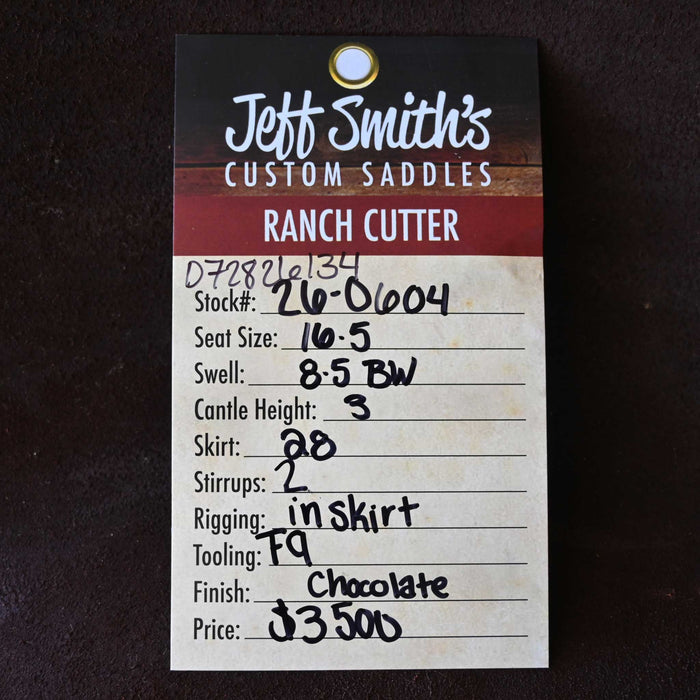 Jeff Smith's
CUSTOM SADDLES
RANCH CUTTER
D72826134
Stock#: 26-0604
Seat Size: 16.5
Swell: 8.5 BW
Cantle Height: 3
Skirt: 28
Stirrups: 2
Rigging: in skirt
Tooling: F9
Finish: Chocolate
Price: $3500